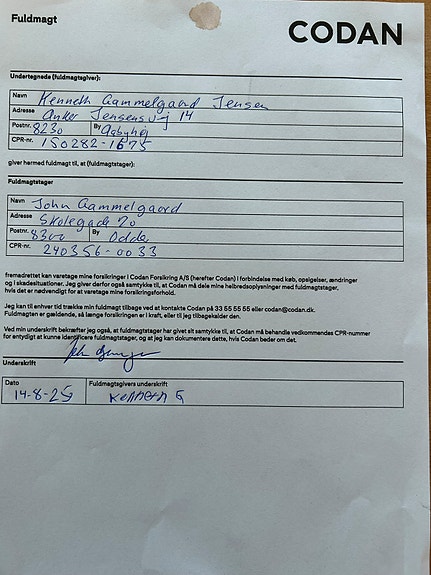 Fuldmagt
CODAN
Undertegnede (fuldmagtsgiver):
Navn Kenneth Gammelgaard Jensen
Adresse Anker Jensensvej 14
Postnr. 8230 By Aabyhøj
CPR-nr. 150282-1675
giver hermed fuldmagt til, at (fuldmagtstager):
Fuldmagtstager
Navn John Gammelgaard
Adresse Skolegade 20
Postnr. 8300 By Odder
CPR-nr. 240356-0033
fremadrettet kan varetage mine forsikringer i Codan Forsikring A/S (herefter Codan) i forbindelse med køb, opsigelser, ændringer
og i skadesituationer. Jeg giver derfor også samtykke til, at Codan må dele mine helbredsoplysninger med fuldmagtstager,
hvis det er nødvendigt for at varetage mine forsikringsforhold.
Jeg kan til enhver tid trække min fuldmagt tilbage ved at kontakte Codan på 33 55 55 55 eller codan@codan.dk.
Fuldmagten er gældende, så længe forsikringen er i kraft, eller til jeg tilbagekalder den.
Ved min underskrift bekræfter jeg også, at fuldmagtstager har givet sit samtykke til, at Codan må behandle vedkommendes CPR-nummer
for entydigt at kunne identificere fuldmagtstager, og at jeg kan dokumentere dette, hvis Codan beder om det.
Underskrift
Dato Fuldmagtsgivers underskrift
14-8-25 Kenneth G